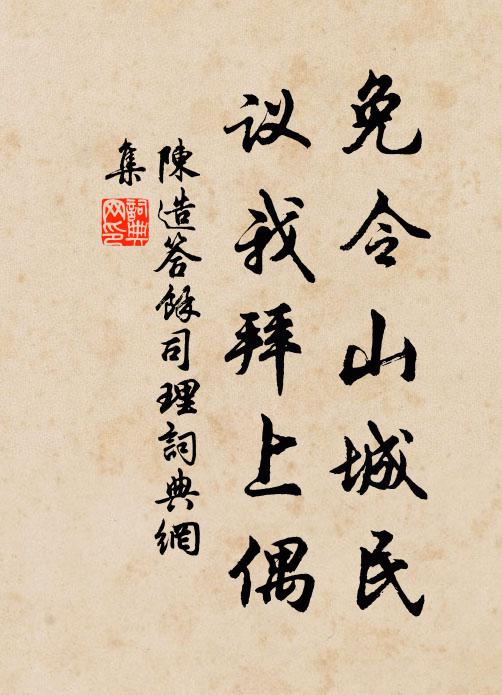 免令山城民
议我拜上偶
陳造答餘司理詞典網
集
詞典网印